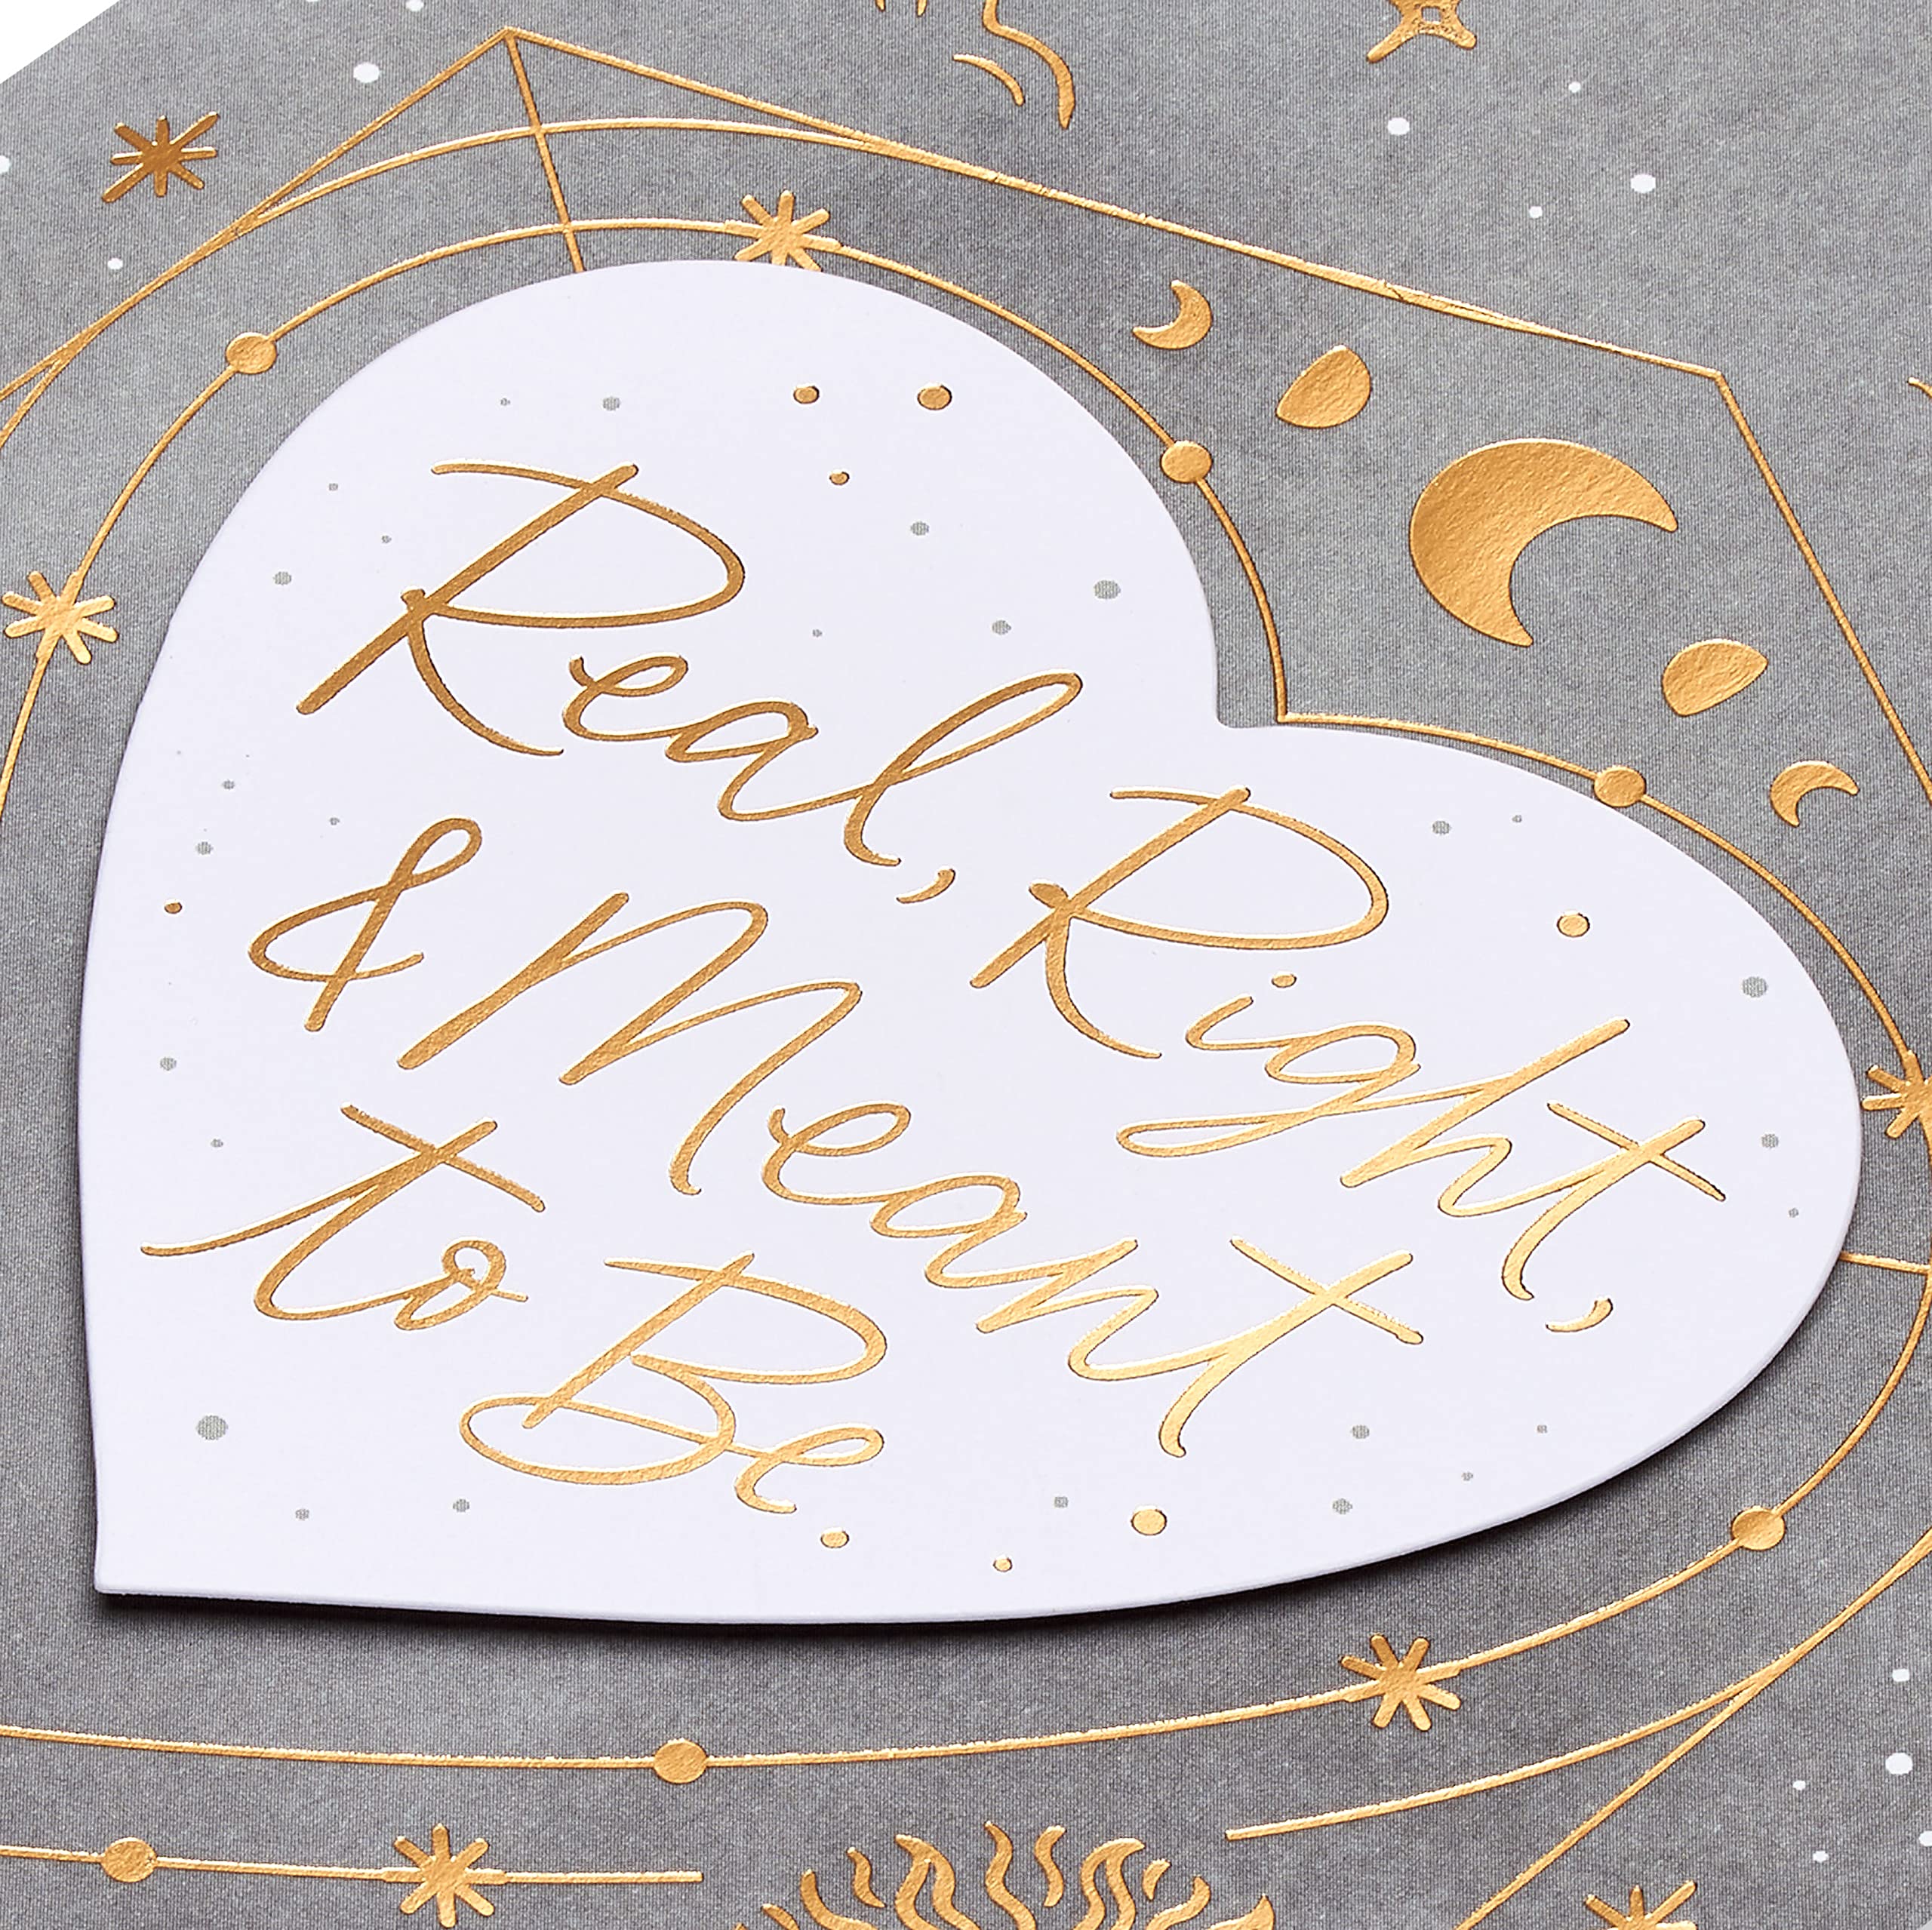 Real, Right,
& Meant
to Be